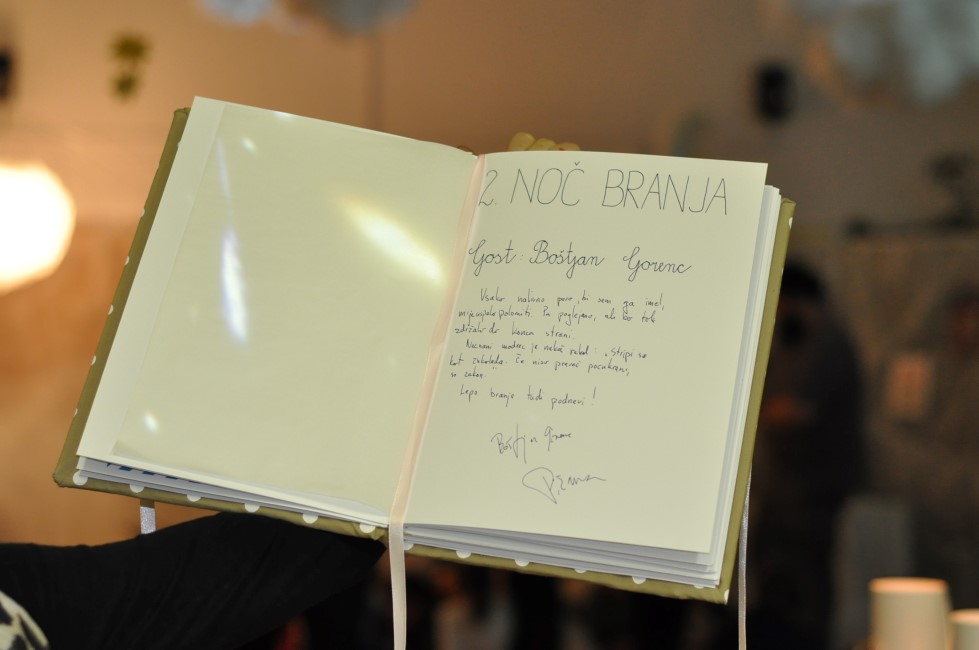 2. NOČ BRANJA
Gost: Boštjan Gorenc
Vsako nalivno pero, ki sem ga imel,
mi je uspelo polomiti. Pa poglejmo, ali bo tole
zdržalo do konca strani.
Neznani modrec je nekoč rekel: "Stripi so
kot čokolada. Če niso preveč pocukrani,
so zakon."
Lepo branje tudi podnevi!
Boštjan Gorenc